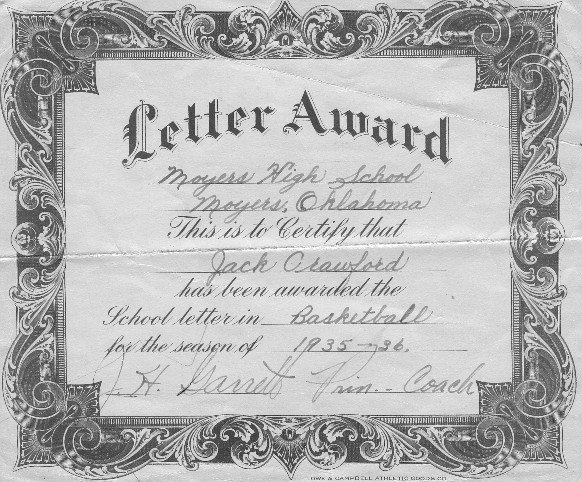 Letter Award
Moyers High School
Moyers, Oklahoma
This is to Certify that
Jack Crawford
has been awarded the
School letter in Basketball
for the season of 1935-36.
J. H. Garrett Prin. - Coach
LOWE & CAMPBELL ATHLETIC GOODS CO.